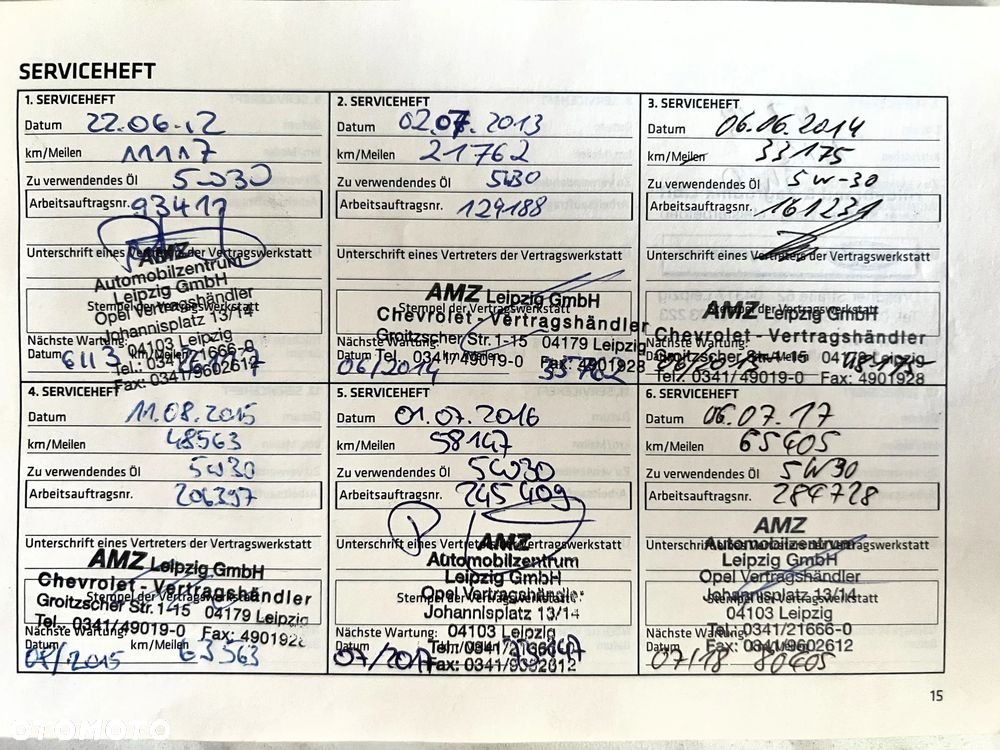 SERVICEHEFT
1. SERVICEHEFT
Datum 22.06.12
km/Meilen 11117
Zu verwendendes Öl 5W30
Arbeitsauftragsnr. 93411
Unterschrift eines Vertreters der Vertragswerkstatt
AMZ
Automobilzentrum
Leipzig GmbH
Opel Vertragshändler
Stempel der Vertragswerkstatt
Johannisplatz 13/14
04103 Leipzig
Nächste Wartung:
Tel.: 0341/21666-0
Datum 6113 km/Meilen
Fax: 0341/9602612
2. SERVICEHEFT
Datum 02.07.2013
km/Meilen 21762
Zu verwendendes Öl 5W30
Arbeitsauftragsnr. 129188
Unterschrift eines Vertreters der Vertragswerkstatt
AMZ Leipzig GmbH
Stempel der Vertragswerkstatt
Chevrolet - Vertragshändler
Groitzscher Str. 1-15 04179 Leipzig
Nächste Wartung:
Tel. 0341/49019-0 Fax: 4901928
Datum 06/2014 km/Meilen
3. SERVICEHEFT
Datum 06.06.2014
km/Meilen 33175
Zu verwendendes Öl 5W-30
Arbeitsauftragsnr. 161231
Unterschrift eines Vertreters der Vertragswerkstatt
AMZ Leipzig GmbH
Stempel der Vertragswerkstatt
Chevrolet - Vertragshändler
Nächste Wartung:
Groitzscher Str. 1-15 04179 Leipzig
Tel.: 0341/49019-0 Fax: 4901928
4. SERVICEHEFT
Datum 11.08.2015
km/Meilen 48563
Zu verwendendes Öl 5W30
Arbeitsauftragsnr. 204397
Unterschrift eines Vertreters der Vertragswerkstatt
AMZ Leipzig GmbH
Chevrolet - Vertragshändler
Stempel der Vertragswerkstatt
Groitzscher Str. 1-15 04179 Leipzig
Tel.. 0341/49019-0 Fax: 4901928
Nächste Wartung:
Datum km/Meilen 63563
5. SERVICEHEFT
Datum 01.07.2016
km/Meilen 58147
Zu verwendendes Öl 5W30
Arbeitsauftragsnr. 245409
Unterschrift eines Vertreters der Vertragswerkstatt
AMZ
Automobilzentrum
Leipzig GmbH
Opel Vertragshändler
Stempel der Vertragswerkstatt
Johannisplatz 13/14
Nächste Wartung: 04103 Leipzig
Datum 07/2017
6. SERVICEHEFT
Datum 06.07.17
km/Meilen 65405
Zu verwendendes Öl 5W30
Arbeitsauftragsnr. 284728
AMZ
Unterschrift eines Vertreters der Vertragswerkstatt
Automobilzentrum
Leipzig GmbH
Opel Vertragshändler
Stempel der Vertragswerkstatt
Johannisplatz 13/14
04103 Leipzig
Nächste Wartung:
Tel.: 0341/21666-0
Datum km/Meilen
Fax: 0341/9602612
07/18 80405
15
OTOMOTO